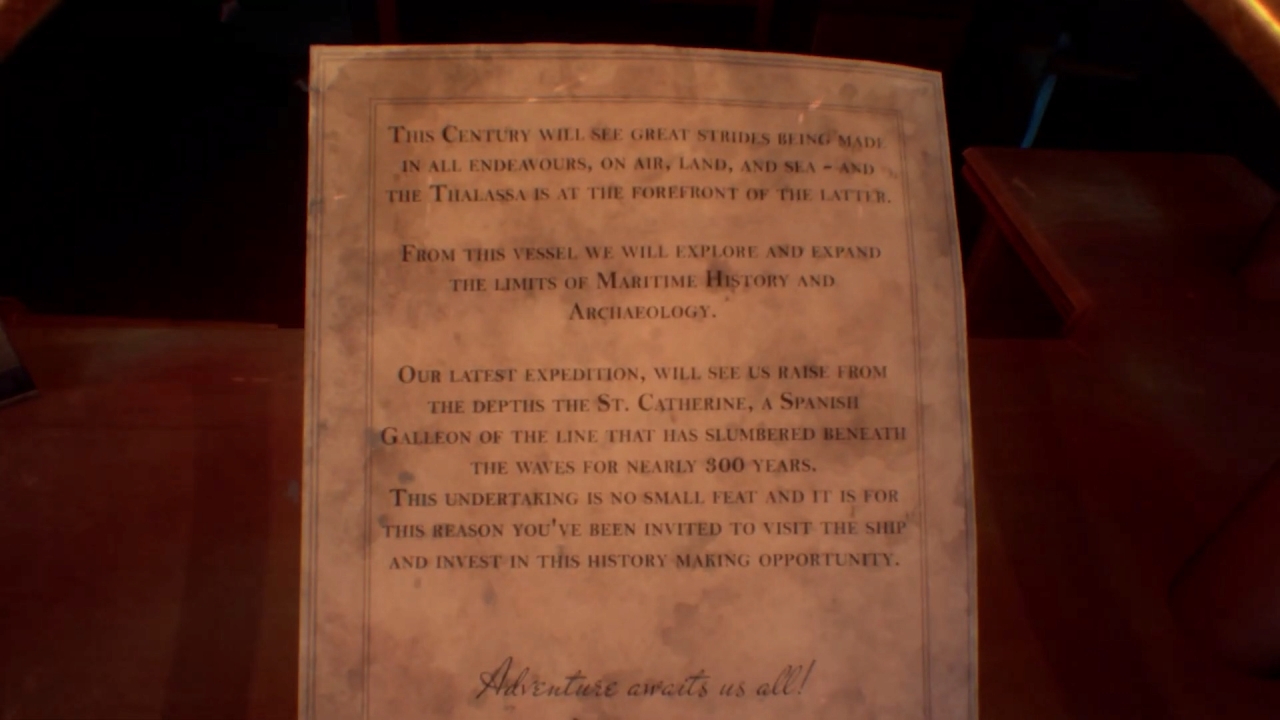 This Century will see great strides being made
in all endeavours, on air, land, and sea - and
the Thalassa is at the forefront of the latter.
From this vessel we will explore and expand
the limits of Maritime History and
Archaeology.
Our latest expedition, will see us raise from
the depths the St. Catherine, a Spanish
Galleon of the line that has slumbered beneath
the waves for nearly 300 years.
This undertaking is no small feat and it is for
this reason you've been invited to visit the ship
and invest in this history making opportunity.
Adventure awaits us all!